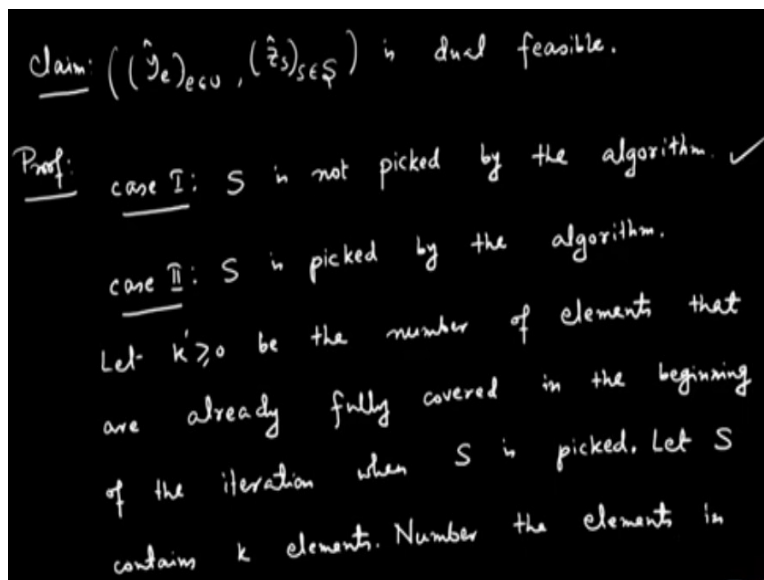 Claim: ((ŷ_e)_{e∈U}, (ẑ_S)_{S∈Ş}) is dual feasible.
Proof: case I: S is not picked by the algorithm. ✓
case II: S is picked by the algorithm.
Let k'≥0 be the number of elements that
are already fully covered in the beginning
of the iteration when S is picked. Let S
contains k elements. Number the elements in